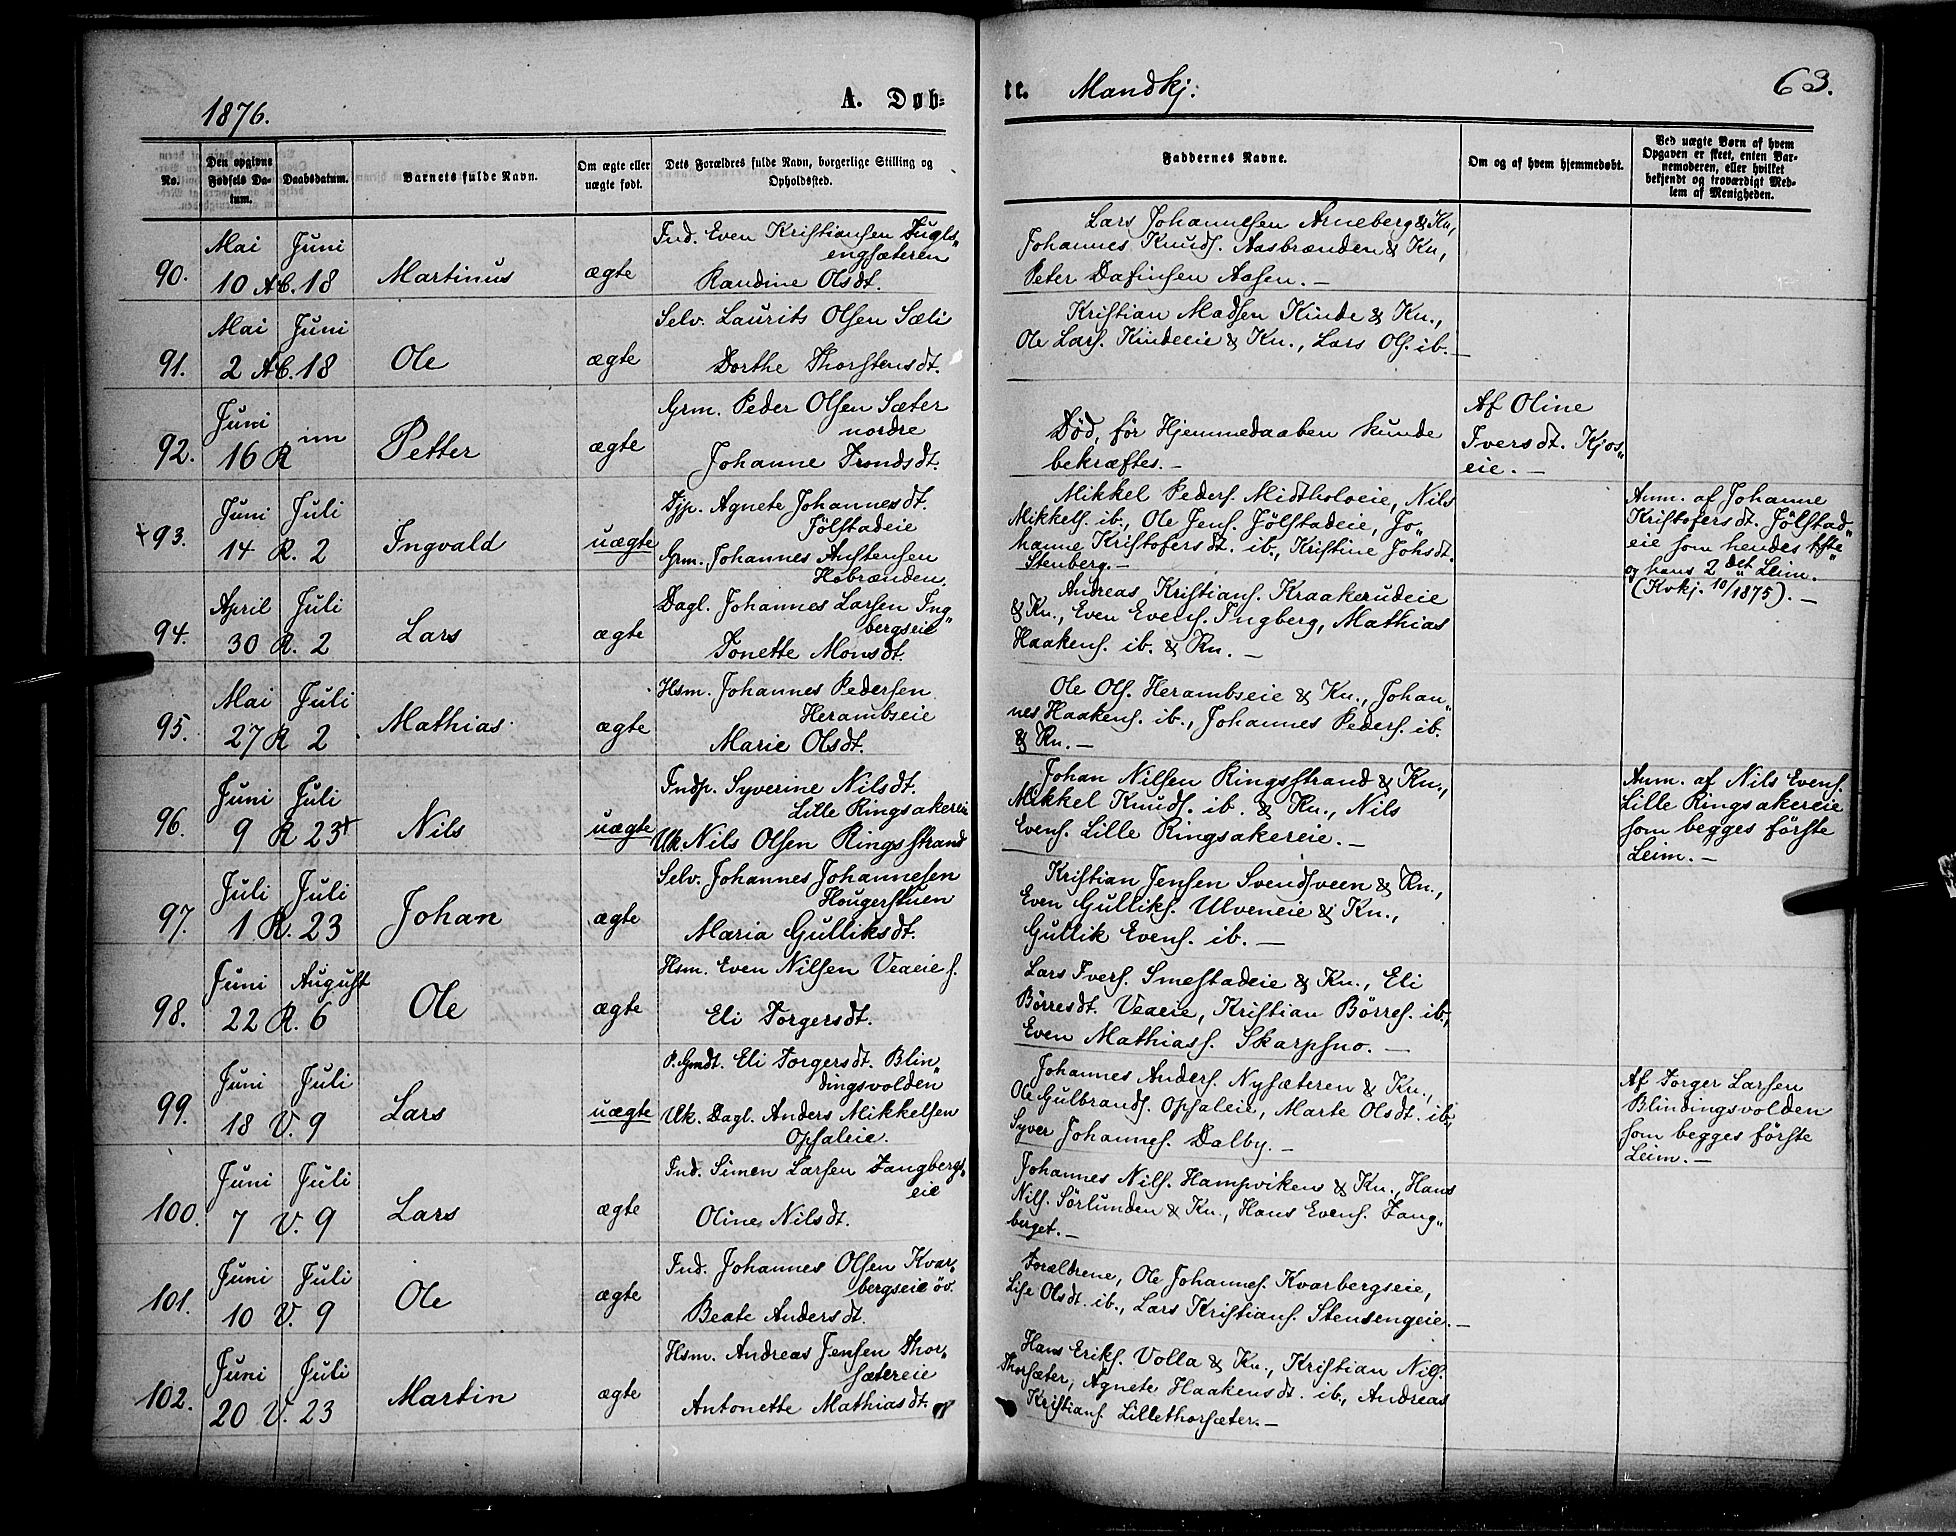 1876.
A. Døb-
te. Mandkj:
63.
No.
Den opgivne Fødsels Da-
tum.
Daabsdatum.
Barnets fulde Navn.
Om ægte eller
uægte født.
Dets Forældres fulde Navn, borgerlige Stilling og
Opholdssted.
Faddernes Navne.
Om og af hvem hjemmedøbt.
Ved uægte Børn af hvem
Opgaven er skeet, enten Bar-
nemoderen, eller hvilket
bekjendt og troværdigt Med-
lem af Menigheden.
90.
Mai
10 Ab.
Juni
18
Martinus
ægte
Ind. Even Kristiansen Fugls„
engsæteren
Randine Olsdt.
Lars Johannesen Arneberg & Kn,
Johannes Knuds. Aasbrænden & Kn,
Peter Dafinsen Aasen. —
91.
Mai
2 Ab.
Juni
18
Ole
ægte
Selv. Laurits Olsen Sæli
Dorthe Thorstensdt.
Kristian Madsen Kinde & Kn.,
Ole Lars. Kindeeie & Kn., Lars Ols. ib. —
92.
Juni
16 R
Petter
ægte
Grm. Peder Olsen Sæter
nordre
Johanne Trondsdt.
Død, før Hjemmedaaben kunde
bekræftes. —
Af Oline
Iversdt. Kjos„
eie. —
+93.
Juni
14 R.
Juli
2
Ingvald
uægte
Tjp. Agnete Johannesdt.
Jölstadeie
Grm. Johannes Anstensen
Hobrænden.
Mikkel Peders. Midtholoeie, Nils
Mikkels. ib., Ole Jens. Jölstadeie, Jo„
hanne Kristofersdt. ib., Kristine Johsdt.
Stenberg. —
Anm. af Johanne
Kristofersdt. Jölstad„
eie som hendes 1ste
og hans 2det Leim.
(Kvkj. 10/1875). —
94.
April
30 R.
Juli
2
Lars
ægte
Dagl. Johannes Larsen Ing„
bergseie
Tonette Monsdt.
Andreas Kristians. Kraakerudeie
& Kn., Even Evens. Ingberg, Mathias
Haakens. ib. & Kn. —
95.
Mai
27 R
Juli
2
Mathias
ægte
Hsm. Johannes Pedersen
Herambseie
Marie Olsdt.
Ole Ols. Herambseie & Kn., Johan„
nes Haakens. ib., Johannes Peders. ib.
& Kn. —
96.
Juni
9 R
Juli
23+
Nils
uægte
Indp. Syverine Nilsdt.
Lille Ringsakereie
Uk. Nils Olsen Ringsstrand
Johan Nilsen Ringsstrand & Kn.,
Mikkel Knuds. ib. & Kn., Nils
Evens. Lille Ringsakereie. —
Anm. af Nils Evens.
Lille Ringsakereie
som begges første
Leim. —
97.
Juli
1 R.
Juli
23
Johan
ægte
Selv. Johannes Johannesen
Hougerstuen
Maria Gulliksdt.
Kristian Jensen Svendsveen & Kn.,
Even Gulliks. Ulveneie & Kn.,
Gullik Evens. ib. —
98.
Juni
22 R.
August
6
Ole
ægte
Hsm. Even Nilsen Veaeie s.
Eli Torgersdt.
Lars Ivers. Smestadeie & Kn., Eli
Börresdt. Veaeie, Kristian Börres. ib.,
Even Mathiass. Skarpsno. —
99.
Juni
18 V.
Juli
9
Lars
uægte
P. Gmdt. Eli Torgersdt. Blin„
dingsvolden
Uk. Dagl. Anders Mikkelsen
Opsaleie.
Johannes Anders. Nysæteren & Kn.,
Ole Gulbrands. Opsaleie, Marte Olsdt. ib.,
Syver Johannes. Dalby. —
Af Torger Larsen
Blindingsvolden
som begges första
Leim. —
100.
Juni
7 V.
Juli
9
Lars
ægte
Ind. Simen Larsen Tangbergs„
eie
Oline Nilsdt.
Johannes Nils. Hampviken & Kn., Hans
Nils. Sörlunden & Kn., Hans Evens. Tang„
berget. —
101.
Juni
10 V.
Juli
9
Ole
ægte
Ind. Johannes Olsen Kvar„
bergseie öv.
Beate Andersdt.
Forældrene, Ole Johannes. Kvarbergseie,
Lise Olsdt. ib., Lars Kristians. Stensengeie. —
102.
Juni
20 V.
Juli
23
Martin
ægte
Hsm. Andreas Jensen Thor„
sætereie
Antonette Mathiasdt.
Hans Eriks. Volla & Kn., Kristian Nils.
Thorsæter, Agnete Haakensdt. ib., Andreas
Kristians. Lillethorsæter. —